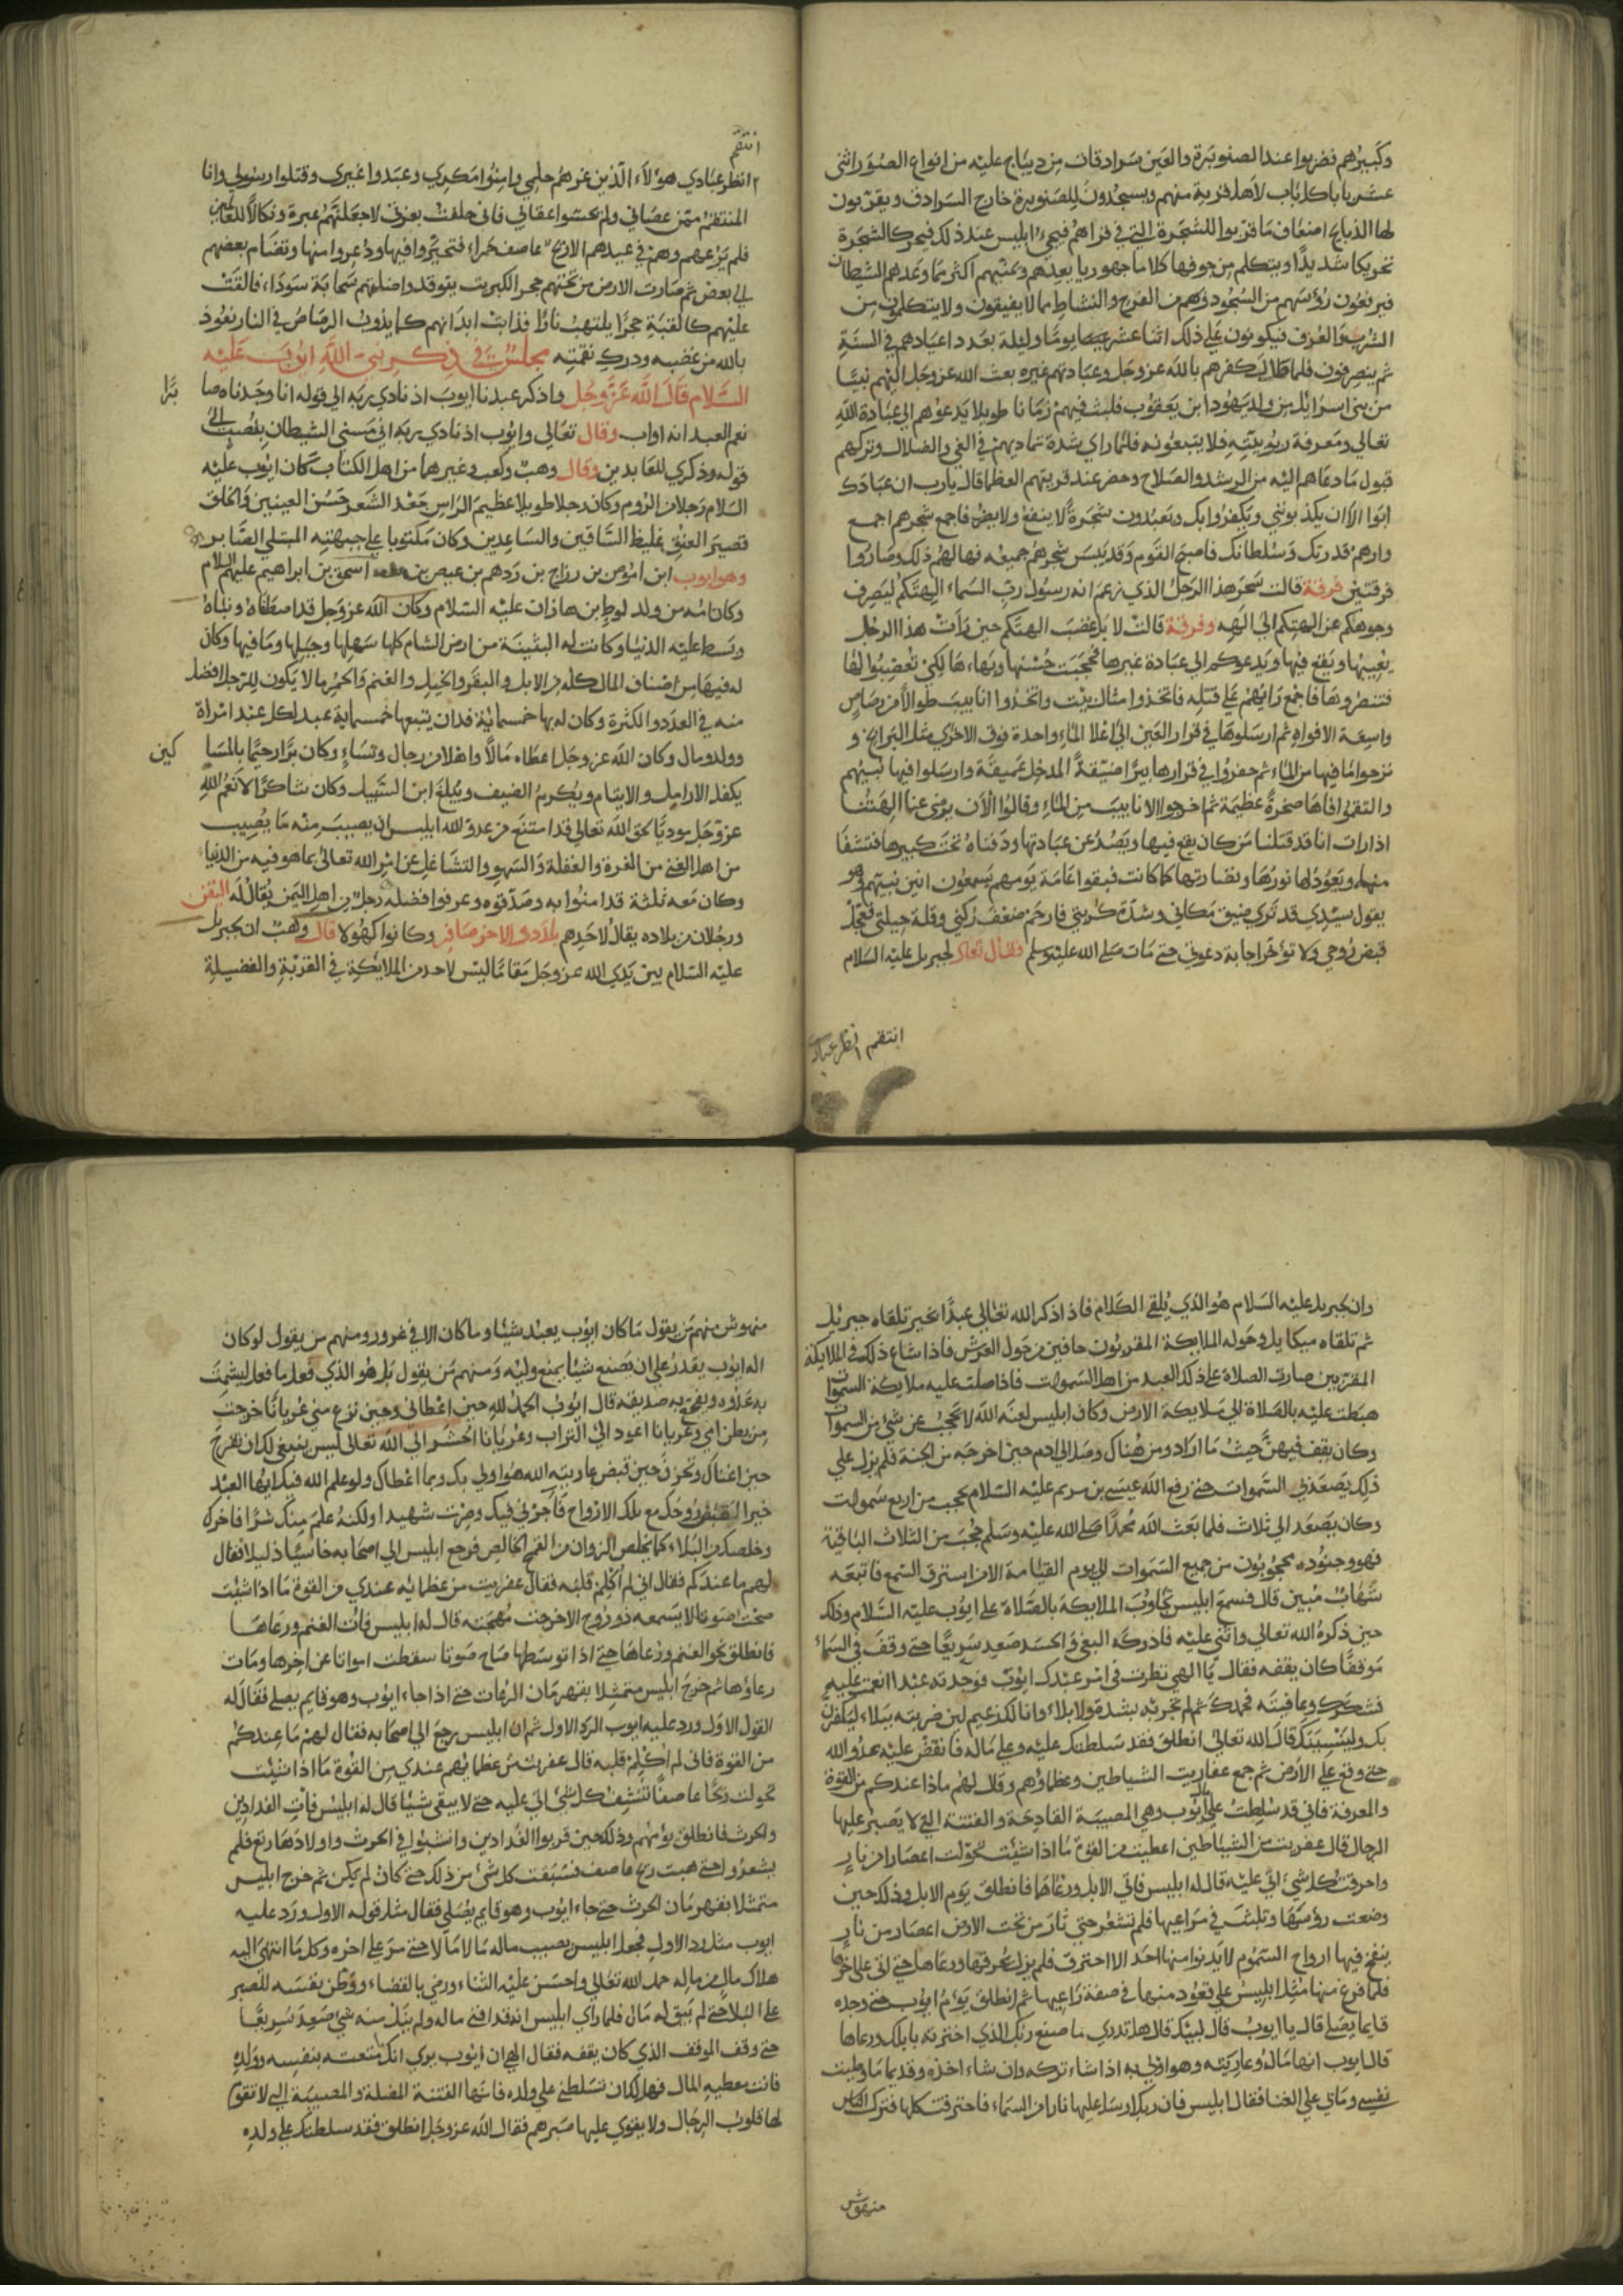 وكبيرهم فضربوا عند الصنوبرة والعين سرادقات من ديباج عليه من انواع الصور اثنى
عشر بابا كل باب لاهل قرية منهم ويسجدون للصنوبرة خارج السرادق ويقربون
لها الذبايح اضعاف ما قربوا للشجرة التي في قراهم فيجيء ابليس عند ذلك فيحرك الشجرة
تحريكا شديدا ويتكلم من جوفها كلاما جهوريا يعدهم ويمنيهم اكثر مما وعدهم الشيطان
فيرفعون رؤسهم من السجود وهم من الفرح والنشاط ما لا يفيقون ولا يتكلمون من
الشرب والعزف فيكونون على ذلك اثنا عشر يوما وليلة بعدد اعيادهم في السنة
ثم ينصرفون فلما طال كفرهم بالله عز وجل وعبادتهم غيره بعث الله عز وجل اليهم نبيا
من بني اسرائل من ولد يهودا ابن يعقوب فلبث فيهم زمانا طويلا يدعوهم الى عبادة الله
تعالى ومعرفة ربوبيته فلا يتبعونه فلما راى شدة تماديهم في الغي والضلال وتركهم
قبول ما دعاهم اليه من الرشد والصلاح وحضر عند قريتهم العظما قال يا رب ان عبادك
ابوا الا ان يكذبونني ويكفروا بك ويعبدون شجرة لا ينفع ولا يضر فاجمع شجرهم اجمع
وارهم قدرتك وسلطانك فاصبح القوم وقد يبس شجرهم جميعه فهالهم ذلك وصاروا
فرقتين فرقة قالت سحر هذا الرجل الذي زعم انه رسول رب السماء الهتكم ليصرف
وجوهكم عن الهتكم الى الهه وفرقة قالت لا بل غضب الهتكم حين رات هذا الرجل
يعيبها ويقع فيها ويدعوكم الى عبادة غيرها فحجبت حسنها وبهاءها لكي تغضبوا لها
فتنصروها فاجمع رايهم على قتله فاتخذوا مثال بيت واتخذوا انابيب طوالا من رصاص
واسعة الافواه ثم ارسلوها في قرار العين الى اعلا الماء واحدة فوق الاخرى مثل البرابخ و
نزحوا ما فيها من الماء ثم حفروا في قرارها بيرا ضيقة المدخل عميقة وارسلوا فيها نبيهم
والتقموا فاها صخرة عظيمة ثم اخرجوا الانابيب من الماء وقالوا الآن يرضى عنا الهتنا
اذا رات انا قد قتلنا من كان يقع فيها ويصد عن عبادتها ودفناه تحت كبيرها فتشفا
منه ويعود لها نورها ونضارتها كما كانت فبقوا عامة يومهم يسمعون انين نبيهم وهو
يقول سيدي قد ترى ضيق مكاني وشدة كربتي فارحم ضعف ركني وقلة حيلتي فعجل
قبض روحي ولا تؤخر اجابة دعوتي حتى مات صلى الله عليه وسلم فقال تعالى لجبريل عليه السلام
انتقم انظر عبادي
انتقم
انظر عبادي هؤلاء الذين غرهم حلمي وامنوا مكري وعبدوا غيري وقتلوا رسولي وانا
المنتقم ممن عصاني ولم يخشوا عقابي فاني حلفت بعزتي لاجعلنهم عبرة ونكالا للعالمين
فلم يزعهم وهم في عيدهم الا ريح عاصف حمراء فتحيروا فيها وذعروا منها وتضام بعضهم
الى بعض ثم صارت الارض من تحتهم حجر الكبريت يتوقد واظلتهم سحابة سوداء فالقت
عليهم كالقبة حجرا يلتهب نارا فذابت ابدانهم كما يذوب الرصاص في النار نعوذ
بالله من غضبه ودرك نقمته مجلس في ذكر نبي الله ايوب عليه
السلام قال الله عز وجل واذكر عبدنا ايوب اذ نادى ربه الى قوله انا وجدناه صا
برا
نعم العبد انه اواب وقال تعالى وايوب اذ نادى ربه اني مسني الشيطان بنصب الى
قوله وذكرى للعابدين وقال وهب وكعب وغيرهما من اهل الكتاب كان ايوب عليه
السلام رجلا من الروم وكان رجلا طويلا عظيم الراس جعد الشعر حسن العينين والخلق
قصير العنق غليظ الساقين والساعدين وكان مكتوبا على جبهته المبتلى الصابر
وهو ايوب ابن اموص بن رزاح بن ردهم بن عيص بن اسحق بن ابراهيم عليهم السلام
وكان امه من ولد لوط بن هاران عليه السلام وكان الله عز وجل قد اصطفاه ونباه
وبسط عليه الدنيا وكانت له البثينة من ارض الشام كلها سهلها وجبلها وما فيها وكان
له فيها من اصناف المال كله من الابل والبقر والخيل والغنم والحمر ما لا يكون للرجل افضل
منه في العدد والكثرة وكان له بها خمسماية فدان يتبعها خمسماية عبد لكل عبد امراة
وولد ومال وكان الله عز وجل اعطاه مالا واهلا من رجال ونساء وكان برا رحيما بالمسا
كين
يكفل الارامل والايتام ويكرم الضيف ويبلغ ابن السبيل وكان شاكرا لانعم الله
عز وجل موديا لحق الله تعالى قد امتنع من عدو الله ابليس ان يصيب منه ما يصيب
من اهل الغنى من الغرة والغفلة والسهو والتشاغل عن امر الله تعالى بما هو فيه من الدنيا
وكان معه ثلثة قد امنوا به وصدقوه وعرفوا فضله رجل من اهل اليمن يقال له اليفن
ورجلان من بلاده يقال لاحدهم بلدد والاخر صافر وكانوا كهولا قال وهب ان لجبريل
عليه السلام بين يدي الله عز وجل مقاما ليس لاحد من الملائكة في القربة والفضيلة
وان جبريل عليه السلام هو الذي يلقى الكلام فاذا ذكر الله تعالى عبدا بخير تلقاه جبرئل
ثم تلقاه ميكايل وحوله الملايكة المقربون حافين من حول العرش فاذا شاع ذلك في الملايكة
المقربين صارت الصلاة على ذلك العبد من اهل السموات فاذا صلت عليه ملايكة السموات
هبطت عليه بالصلاة الى ملايكة الارض وكان ابليس لعنه الله لا يحجب عن شيء من السموات
وكان يقف فيهن حيث ما اراد ومن هناك وصل الى ادم حين اخرجه من الجنة فلم يزل على
ذلك يصعد في السموات حتى رفع الله عيسى بن مريم عليه السلام فحجب من اربع سموات
وكان يصعد الى ثلاث فلما بعث الله محمدا صلى الله عليه وسلم حجب من الثلاث الباقية
فهو وجنوده محجوبون من جميع السموات الى يوم القيامة الا من استرق السمع فاتبعه
شهاب مبين قال فسمع ابليس تجاوب الملايكة بالصلاة على ايوب عليه السلام وذلك
حين ذكره الله تعالى واثنى عليه فادركه البغي والحسد صعد سريعا حتى وقف في السماء
موقفا كان يقفه فقال يا الهي نظرت في امر عبدك ايوب فوجدته عبدا انعمت عليه
فشكرك وعافيته فحمدك ثم لم تجربه بشدة ولا بلاء وانا لك زعيم لين ضربته ببلاء ليكفرن
بك ولينسينك قال الله تعالى انطلق فقد سلطتك عليه وعلى ماله فانقض عليه عدو الله
حتى وقع على الارض ثم جمع عفاريت الشياطين وعظماؤهم وقال لهم ماذا عندكم من القوة
والمعرفة فاني قد سلطت على ايوب وهي المصيبة الفادحة والفتنة التي لا يصبر عليها
الرجال قال عفريت من الشياطين اعطيت من القوة ما اذا شئت تحولت اعصارا من نار
واحرقت كل شيء اتى عليه قال له ابليس فاتي الابل ورعاها فانطلق يؤم الابل وذلك حين
وضعت رؤسها وثبتت في مراعيها فلم تشعر حتى ثار من تحت الارض اعصار من نار
ينفخ فيها ارواح السموم لا يدنوا منها احد الا احترق فلم يزل يحرقها ورعاها حتى اتى على اخرها
فلما فرغ منها مثل ابليس على قعود منها في صفة راعيها ثم انطلق يؤم ايوب حتى وجده
قايما يصلي قال يا ايوب قال لبيك قال هل تدري ما صنع ربك الذي اخترته بابلك ورعاها
قال ايوب انها ماله وعاريته وهو اولى به اذا شاء تركه وان شاء اخذه وقديما ما وطنت
نفسي ومالي على الفنا فقال ابليس فان ربك ارسل عليها نارا من السماء فاحترقت كلها فترك الناس
منهوش
منهوش منهم من يقول ما كان ايوب يعبد شيئا وما كان الا في غرور ومنهم من يقول لو كان
اله ايوب يقدر على ان يصنع شيئا يمنع وليه ومنهم من يقول بل هو الذي فعل ما فعل ليشمت
به عدوه ويفجع به صديقه قال ايوب الحمد لله حين اعطاني وحين نزع مني عريانا خرجت
من بطن امي وعريانا اعود الى التراب وعريانا احشر الى الله تعالى ليس ينبغي لك ان تفرح
حين اغناك وتحزن حين قبض عاريته الله هو اولى بك وبما اعطاك ولو علم الله فيك ايها العبد
خيرا لقبض روحك مع تلك الارواح فآجرني فيك وصرت شهيدا ولكنه علم منك شرا فاخرك
وخلصك من البلاء كما يخلص الزوان من القمح الخالص فرجع ابليس الى اصحابه خاسئا ذليلا فقال
لهم ما عندكم فقال اني لم اكلم قلبه فقال عفريت من عظمايه عندي من القوة ما اذا شئت
صحت صوتا لا يسمعه ذو روح الا خرجت مهجته قال له ابليس فات الغنم ورعاها
فانطلق نحو الغنم ورعاها حتى اذا توسطها صاح صوتا سقطت امواتا عن اخرها ومات
رعاؤها ثم خرج ابليس متمثلا بقهرمان الرعات حتى اذا جاء ايوب وهو قايم يصلي فقال له
القول الاول ورد عليه ايوب الرد الاول ثم ان ابليس رجع الى اصحابه فقال لهم ما عندكم
من القوة فاني لم اكلم قلبه قال عفريت من عظمايهم عندي من القوة ما اذا شئت
تحولت ريحا عاصفا تنشف كل شيء اتى عليه حتى لا يبقى شيئا قال له ابليس فات الفدادين
والحرث فانطلق يؤمهم وذلك حين قربوا الفدادين وانشبوا في الحرث واولادها رتع فلم
يشعروا حتى هبت ريح عاصف فنسفت كل شيء من ذلك حتى كان لم يكن ثم خرج ابليس
متمثلا بقهرمان الحرث حتى جاء ايوب وهو قايم يصلي فقال مثل قوله الاول ورد عليه
ايوب مثل رد الاول فجعل ابليس يصيب ماله مالا مالا حتى مر على اخره وكل ما انتهى اليه
هلاك مال من ماله حمد الله تعالى واحسن عليه الثناء ورضي بالقضاء ووطن نفسه للصبر
على البلا حتى لم يبق له مال فلما راى ابليس انه قد افنى ماله ولم ينل منه شيء صعد سريعا
حتى وقف الموقف الذي كان يقفه فقال الهي ان ايوب يرى انك متعته بنفسه وولده
فانت معطيه المال فهل لك ان تسلطني على ولده فانها الفتنة المضلة والمصيبة التي لا تقوم
لها قلوب الرجال ولا يقوى عليها صبرهم فقال الله عز وجل انطلق فقد سلطتك على ولده